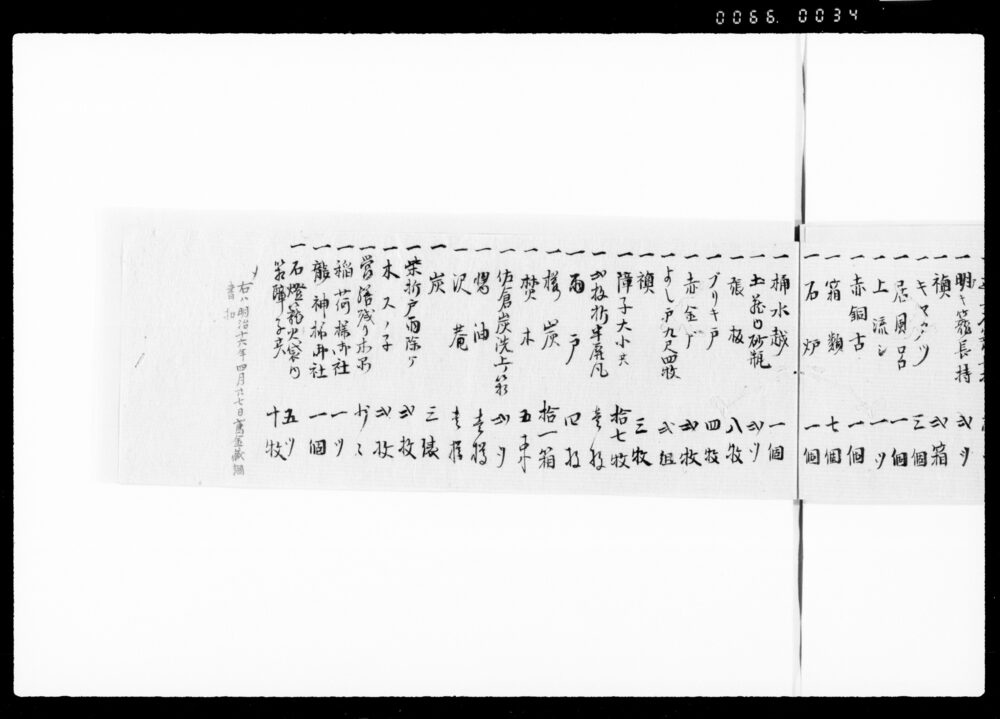 0066. 0034
一明キ籠長持 弐ツ
一槓 弐箱
一キヤタツ 三個
一居風呂 一個
一上流シ 一ツ
一赤銅古 一個
一箱類 七個
一石炉 一個
一桶水越 一個
一土瓶 砂瓶 弐ツ
一張板 八牧
一ブリキ戸 四牧
一赤金戸 弐牧
一よし戸九尺四牧 弐組
一槓 三牧
一障子大小共 拾七牧
一弐枚折半屏風 壱枚
一雨戸 四枚
一桜炭 拾一箱
一焚木 五束
一佐倉炭洗上ケ 弐ツ
一醤油 壱樽
一沢庵 壱樽
一炭 三俵
一柴折戸雨除ケ 弐枚
一木スノ子 弐枚
一営繕残リ木品 少々
一稲荷様御社 一ツ
一龍神様御社 一個
一石燈籠火袋 五ツ
障子 十牧
〆
右ハ明治十六年四月廿七日
書扣